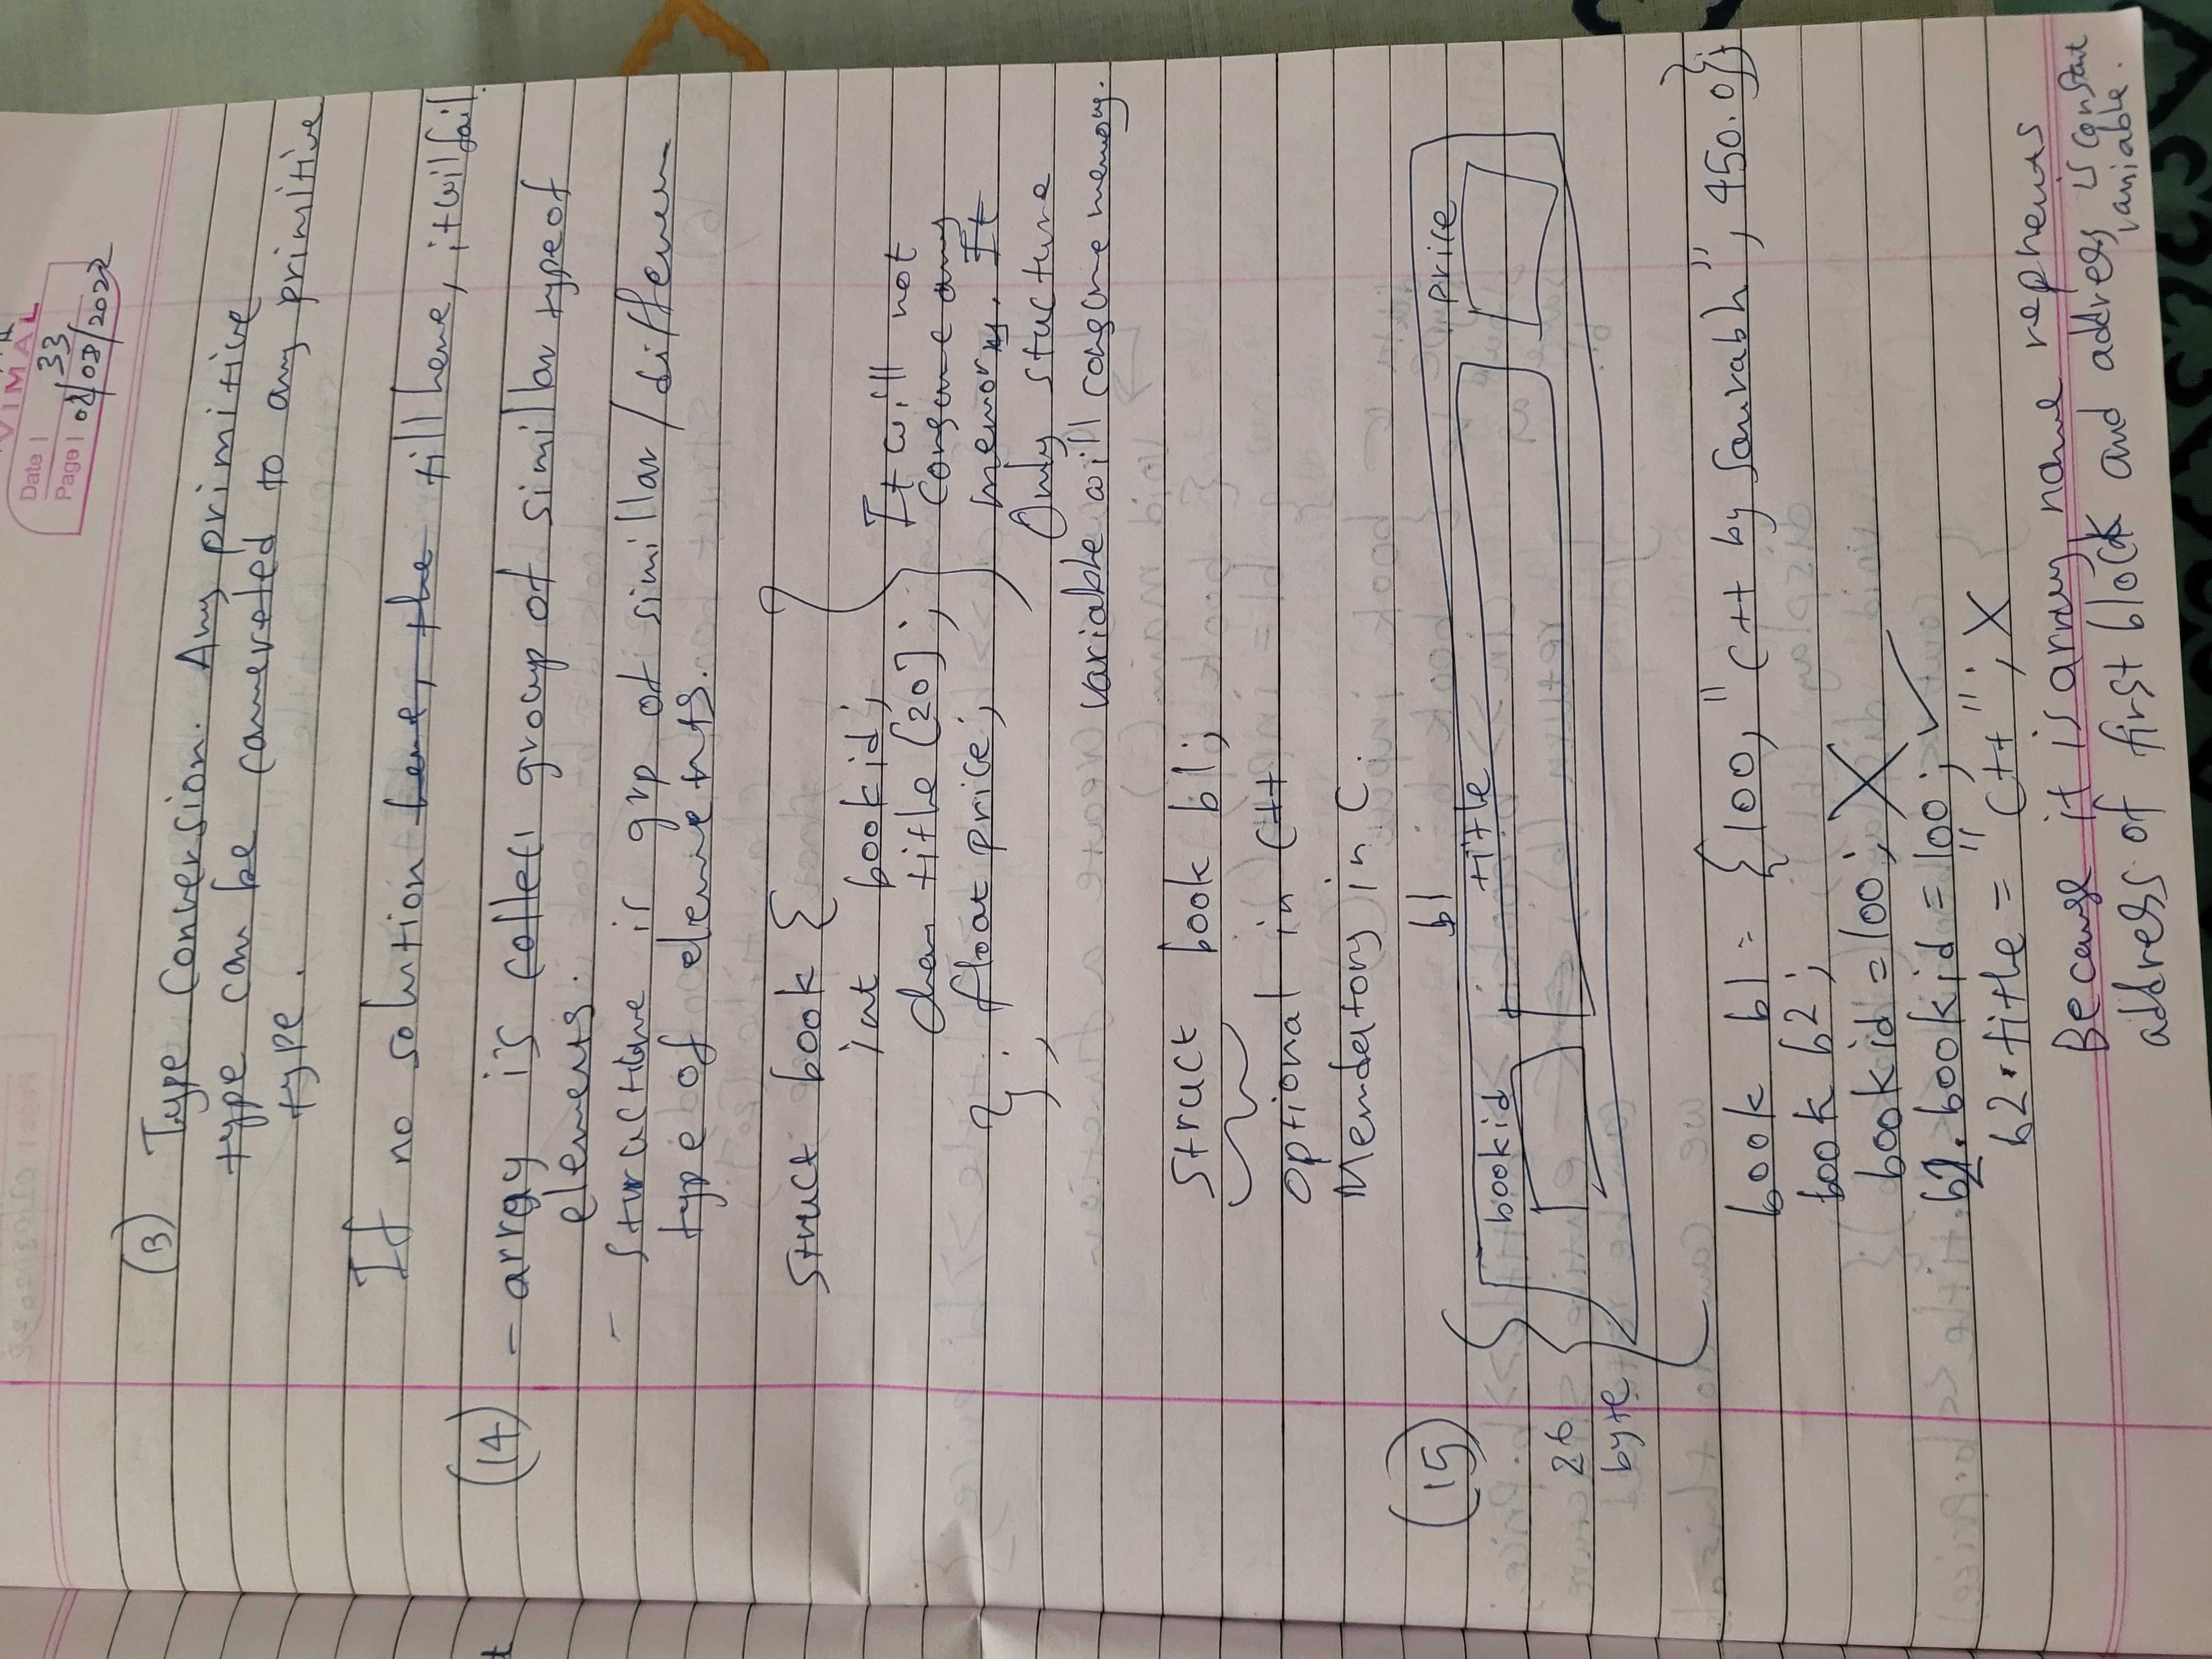 VIMAL
Date | 33
Page | 02/03/2022
(B) Type Conversion. Any primitive
type can be camereted to any primitive
type.
If no solution here, the till here, it wil fail.
(14) - array is collect group of simillar type of
elements.
- Sturacture is grp of simillar/differen
type of elements.
struct book {
int bookid;
char title [20];
float price;
};
It will not
consume any
memory. It
Only stucture
variable will consume memory.
struct book b1;
optional in C++
Mendatory in C.
(15) b1
bookid title price
26
byte
book b1 = {100, "C++ by Saurabh", 450.0};
book b2;
bookid = 100; X
b2.bookid = 100; ✓
b2.title = "C++"; X
Because it is array name reprents
address of first block and address is constant
variable.